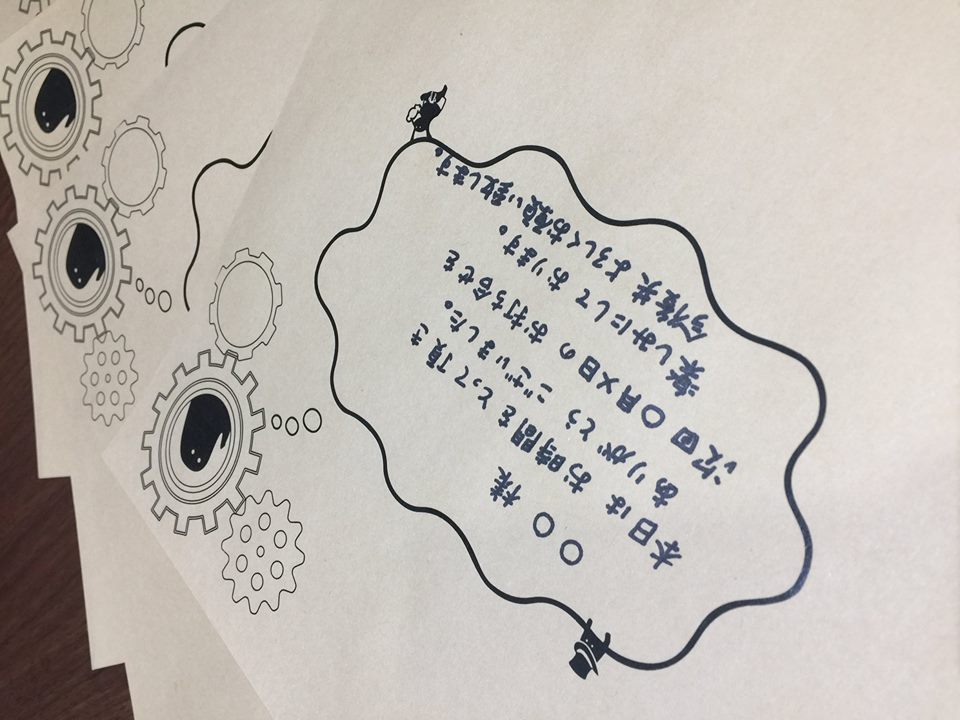 ○○様
本日はお時間をとって頂き
ありがとうございました。
次回○月×日のお打ち合せを
楽しみにしております。
今後共よろしくお願い致します。